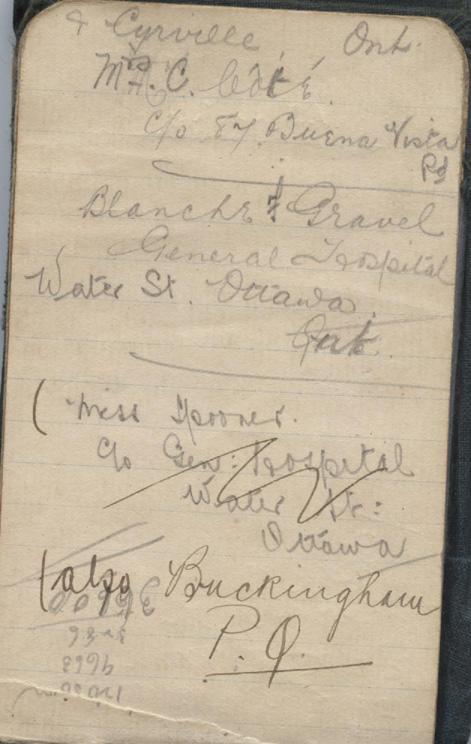 & Cyrville Ont.
C. Côté.
c/o 87. Buena Vista
Rd
Blanche Gravel
General Hospital
Water St. Ottawa.
Ont.
( Miss Spooner.
c/o Gen: Hospital
Water St:
Ottawa
(also Buckingham
P.Q.